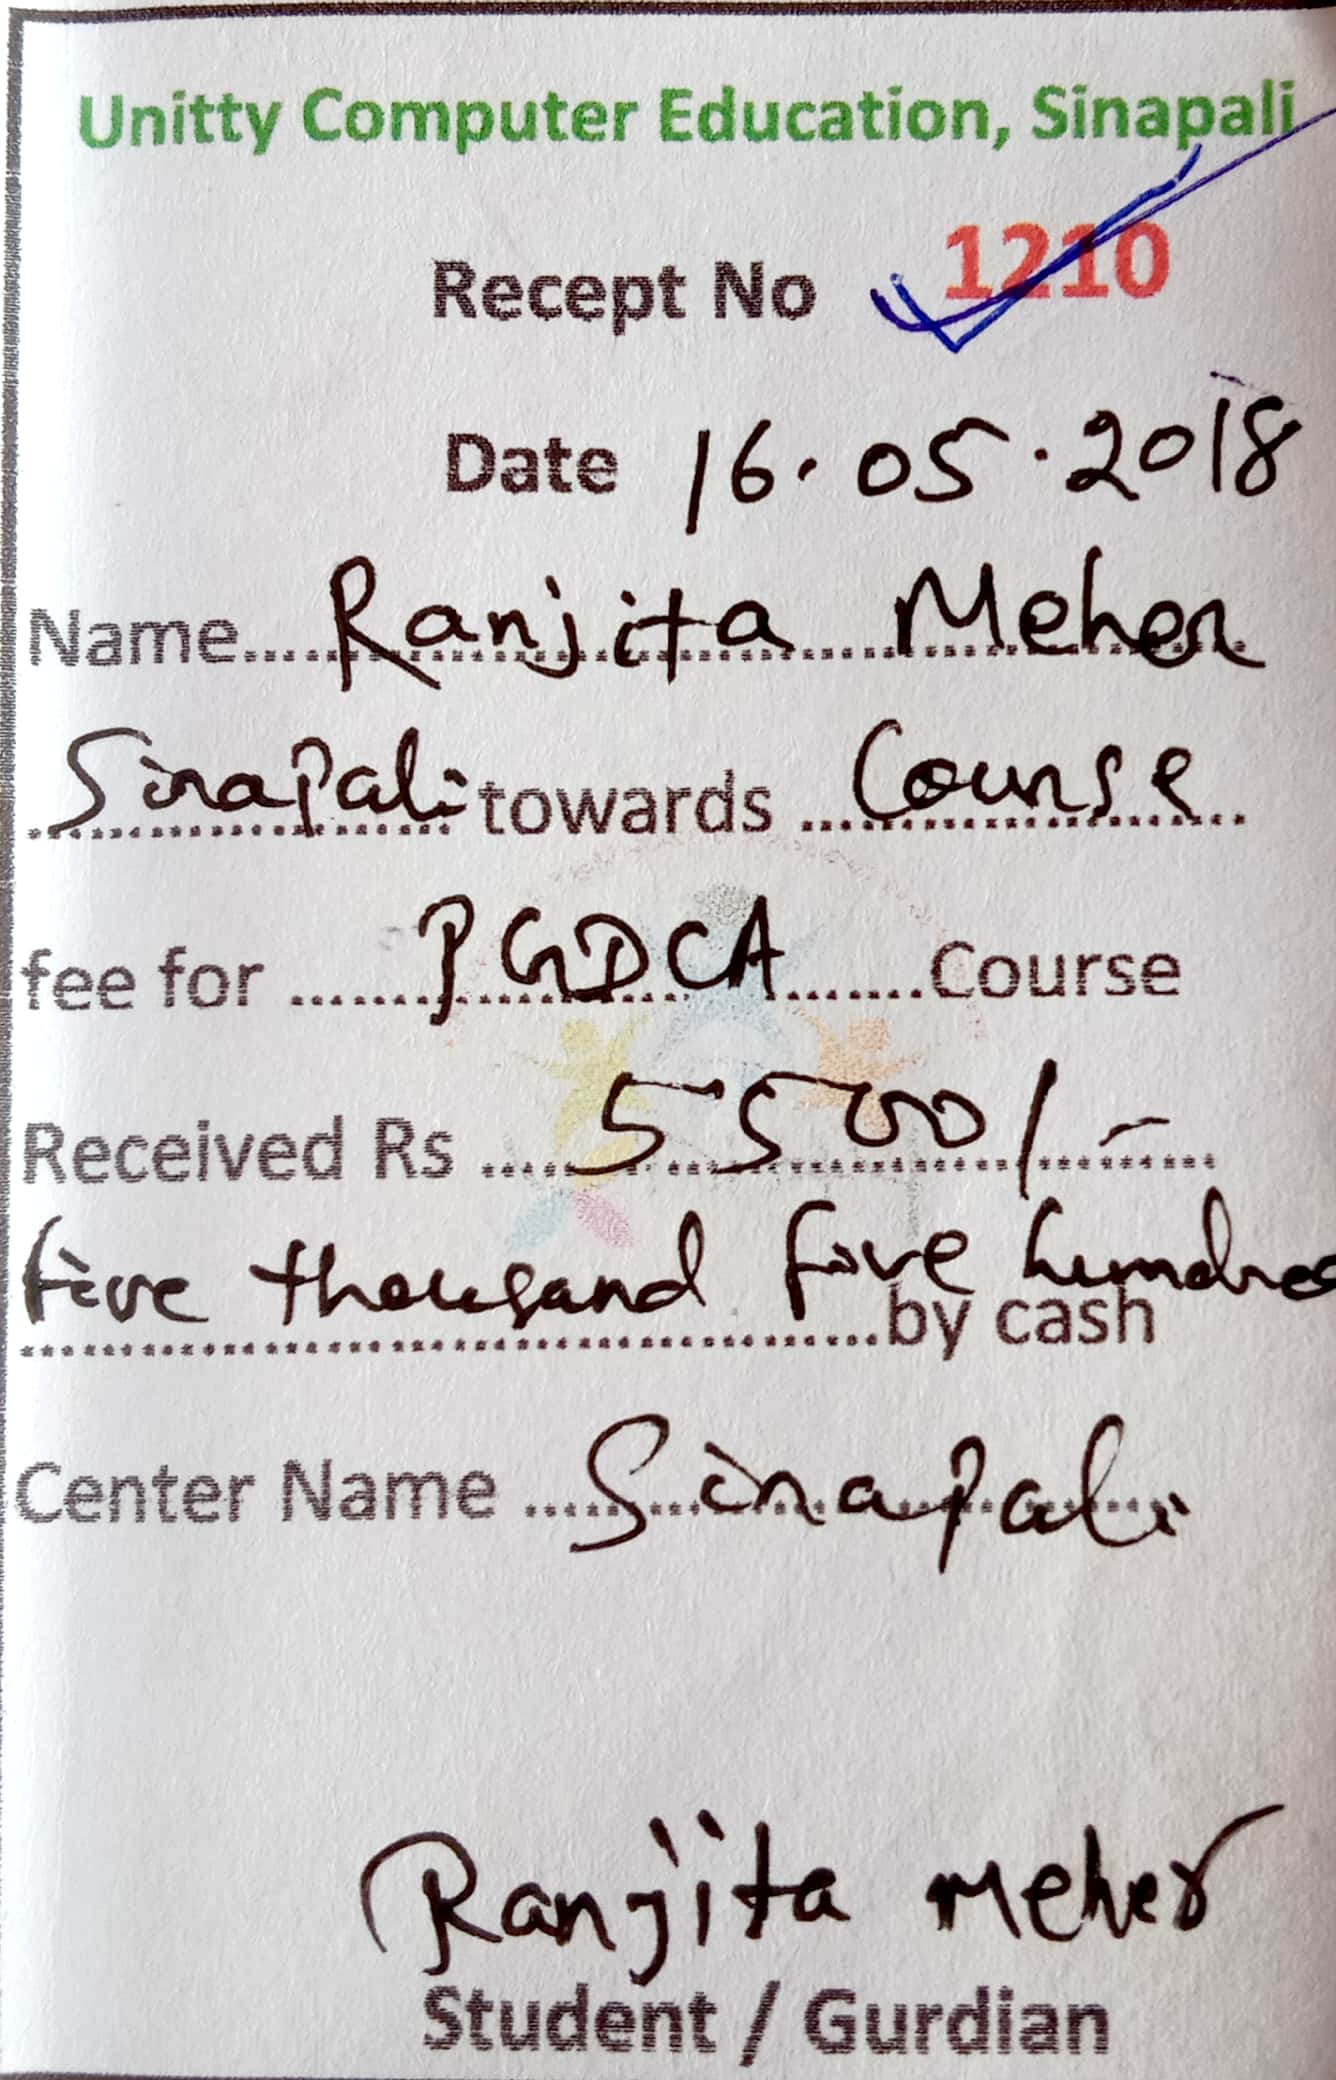 Unitty Computer Education, Sinapali
Recept No 1210
Date 16.05.2018
Name Ranjita Meher
Sinapali towards Course
fee for PGDCA Course
Received Rs 5500/-
five thousand five hundred
by cash
Center Name Sinapali
Ranjita Meher
Student / Gurdian